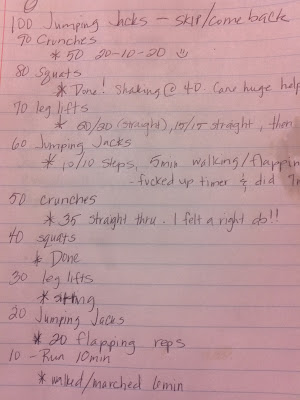 100 Jumping Jacks - skip/come back
90 Crunches
* 50 20-10-20
80 Squats
* Done! Shaking @ 40. Cane huge help
70 leg lifts
* (straight), 15/15 straight, then
60 Jumping Jacks
* 10/10 steps, 5min walking/flappin
- fucked up timer & did 7m
50 crunches
* 35 straight thru. I felt a right ab!!
40 squats
* Done
30 leg lifts
*
20 Jumping Jacks
* 20 flapping reps
10 - Run 10min
* walked/marched 6min